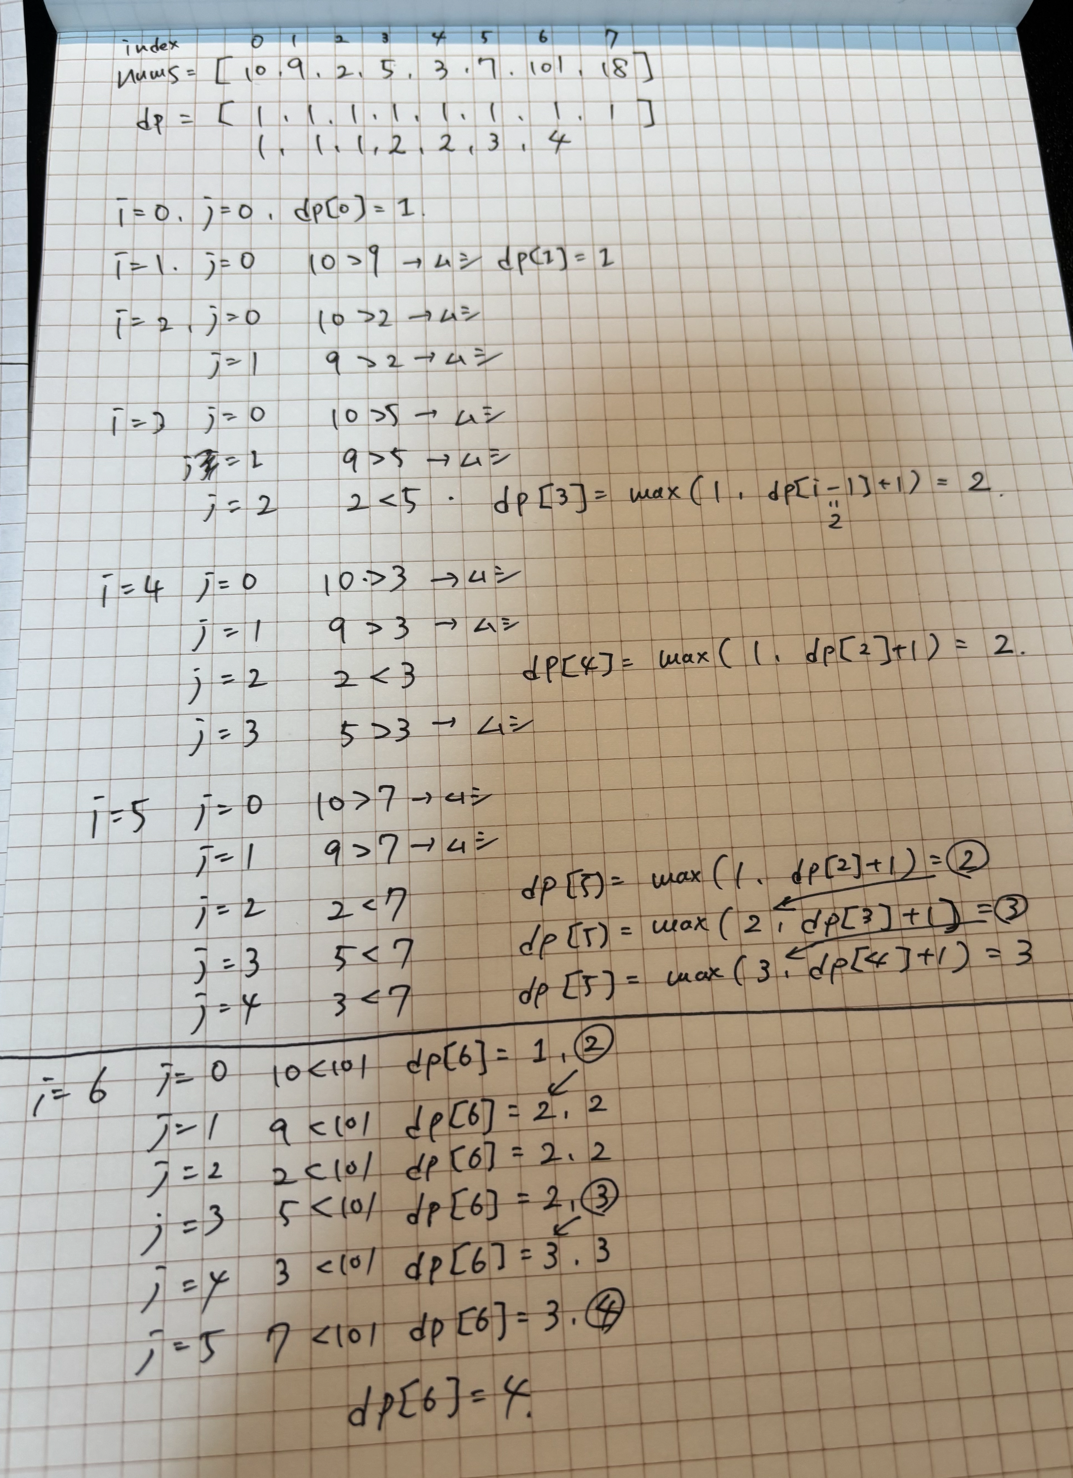 index 0 1 2 3 4 5 6 7
nums = [ 10 . 9 . 2 . 5 . 3 . 7 . 101 . 18 ]
dp = [ 1 . 1 . 1 . 1 . 1 . 1 . 1 . 1 ]
1 . 1 . 1 . 2 . 2 . 3 . 4
i=0. j=0. dp[0]=1.
i=1. j=0 10>9 → dp[1]=1
i=2, j=0 10>2 →
j=1 9>2 →
i=3 j=0 10>5 →
j=1 9>5 →
j=2 2<5 . dp[3]= max(1 . dp[i-1]+1) = 2.
"
2
i=4 j=0 10>3 →
j=1 9>3 →
j=2 2<3 dp[4]= max(1 . dp[2]+1) = 2.
j=3 5>3 →
i=5 j=0 10>7 →
j=1 9>7 →
j=2 2<7 dp[5]= max(1 . dp[2]+1) = ②
j=3 5<7 dp[5]= max(2 . dp[3]+1) = ③
j=4 3<7 dp[5]= max(3 . dp[4]+1) = 3
i=6 j=0 10<101 dp[6]= 1 . ②
j=1 9<101 dp[6]= 2 . 2
j=2 2<101 dp[6]= 2 . 2
j=3 5<101 dp[6]= 2 . ③
j=4 3<101 dp[6]= 3 . 3
j=5 7<101 dp[6]= 3 . ④
dp[6]=4.